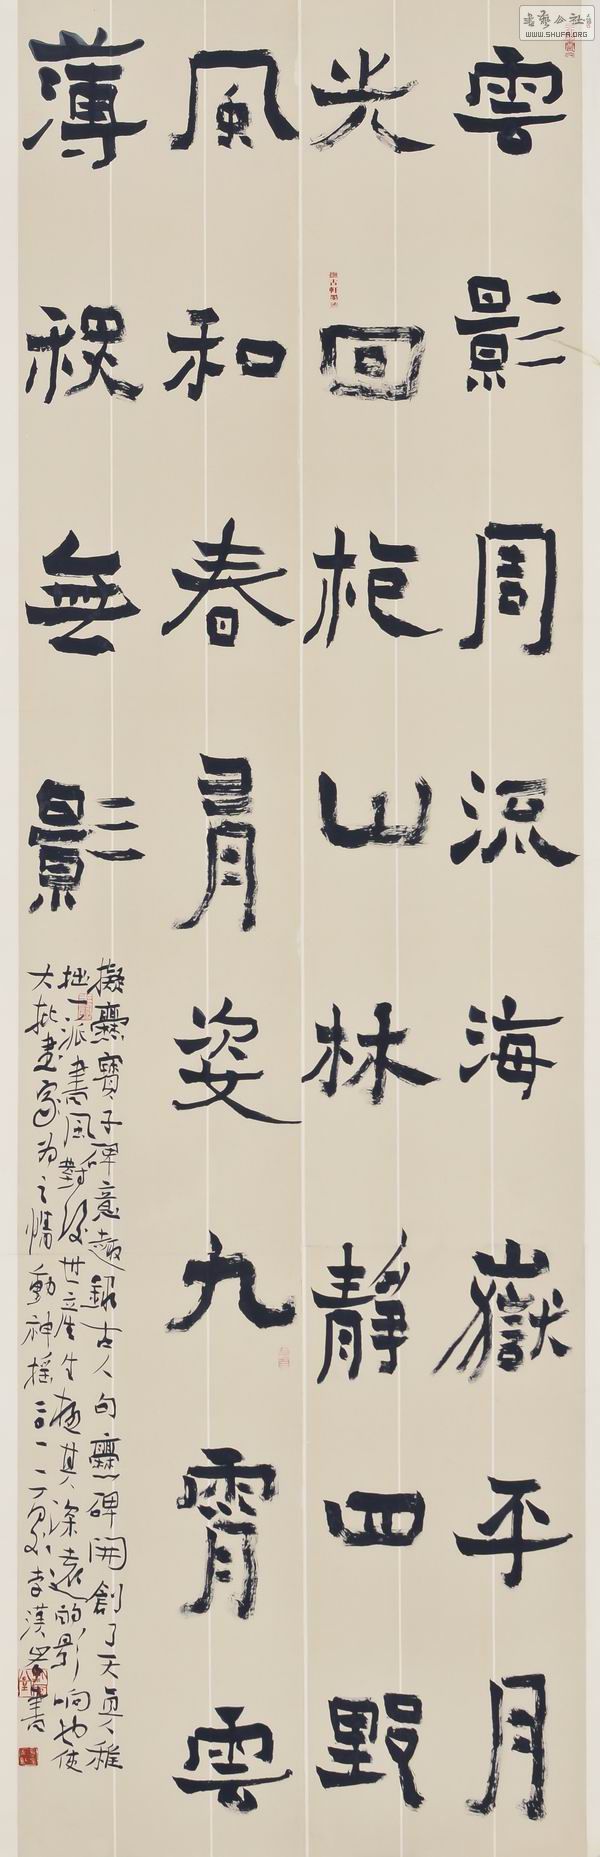 雲影周流海嶽平月
光回山林靜四野
風和春姿九霄雲
薄無影
擬爨寶子碑意趣錄古人句爨碑開創了天真稚
拙一派書風對後世產生極其深遠的影响也使
大批書家為之情動神摇二〇一一夏李漢書
WWW.SHUFA.ORG